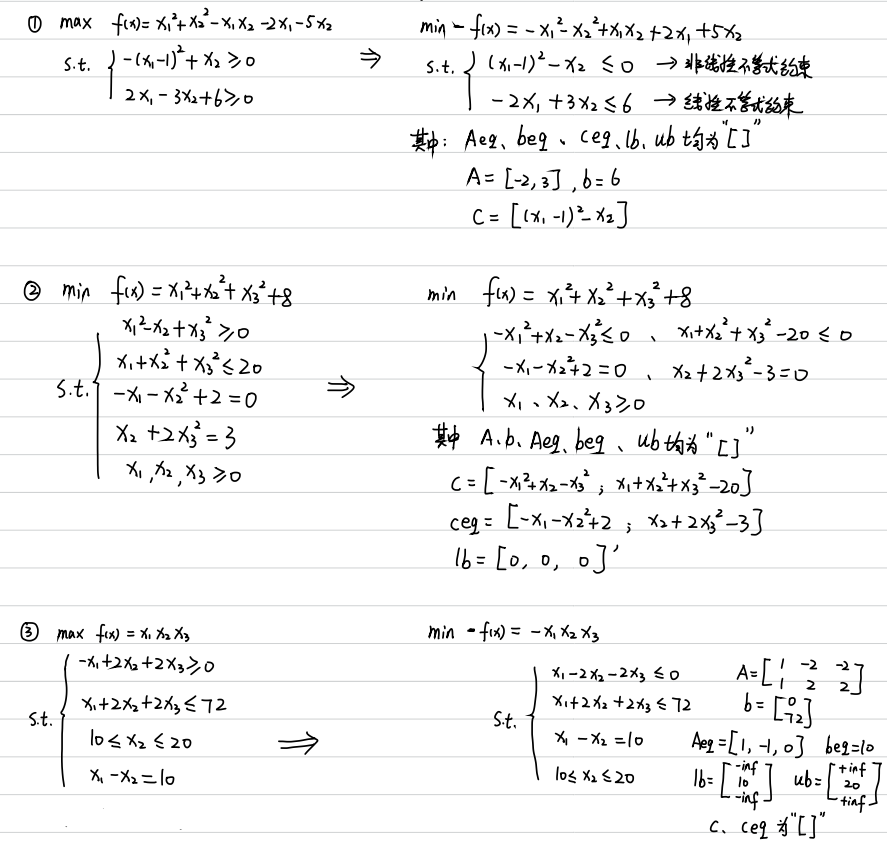 ① max f(x)=x₁²+x₂²-x₁x₂-2x₁-5x₂
s.t. { -(x₁-1)²+x₂≥0
2x₁-3x₂+6≥0
⇒
min -f(x)=-x₁²-x₂²+x₁x₂+2x₁+5x₂
s.t. { (x₁-1)²-x₂≤0 → 非线性不等式约束
-2x₁+3x₂≤6 → 线性不等式约束
其中: Aeq、beq、ceq、lb、ub均为"[]"
A=[-2,3],b=6
C=[(x₁-1)²-x₂]
② min f(x)=x₁²+x₂²+x₃²+8
s.t. { x₁²-x₂+x₃²≥0
x₁+x₂²+x₃²≤20
-x₁-x₂²+2=0
x₂+2x₃²=3
x₁,x₂,x₃≥0
⇒
min f(x)=x₁²+x₂²+x₃²+8
{ -x₁²+x₂-x₃²≤0、x₁+x₂²+x₃²-20≤0
-x₁-x₂²+2=0、x₂+2x₃²-3=0
x₁、x₂、x₃≥0
其中 A.b、Aeq、beq、ub均为"[]"
C=[-x₁²+x₂-x₃²; x₁+x₂²+x₃²-20]
ceq=[-x₁-x₂²+2; x₂+2x₃²-3]
lb=[0,0,0]'
③ max f(x)=x₁x₂x₃
s.t. { -x₁+2x₂+2x₃≥0
x₁+2x₂+2x₃≤72
10≤x₂≤20
x₁-x₂=10
⇒
min -f(x)=-x₁x₂x₃
s.t. { x₁-2x₂-2x₃≤0
x₁+2x₂+2x₃≤72
x₁-x₂=10
10≤x₂≤20
A=[1 -2 -2
1 2 2]
b=[0
72]
Aeq=[1,-1,0] beq=10
lb=[-inf
10
-inf]
ub=[+inf
20
+inf]
C、ceq为"[]"